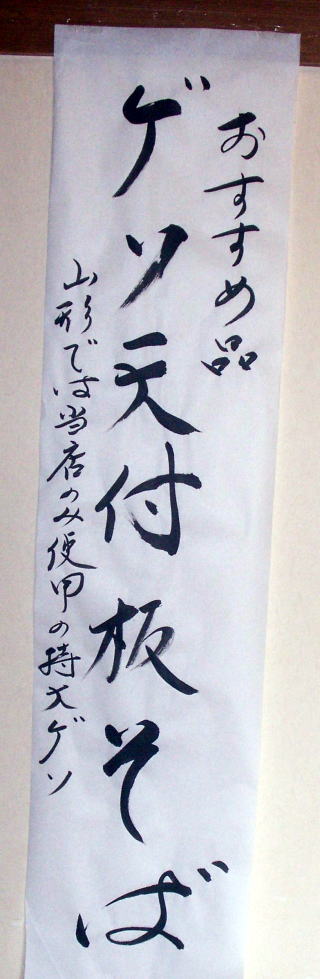 おすすめ品
ゲソ天付板そば
山形では当店のみ使用の特大ゲソ